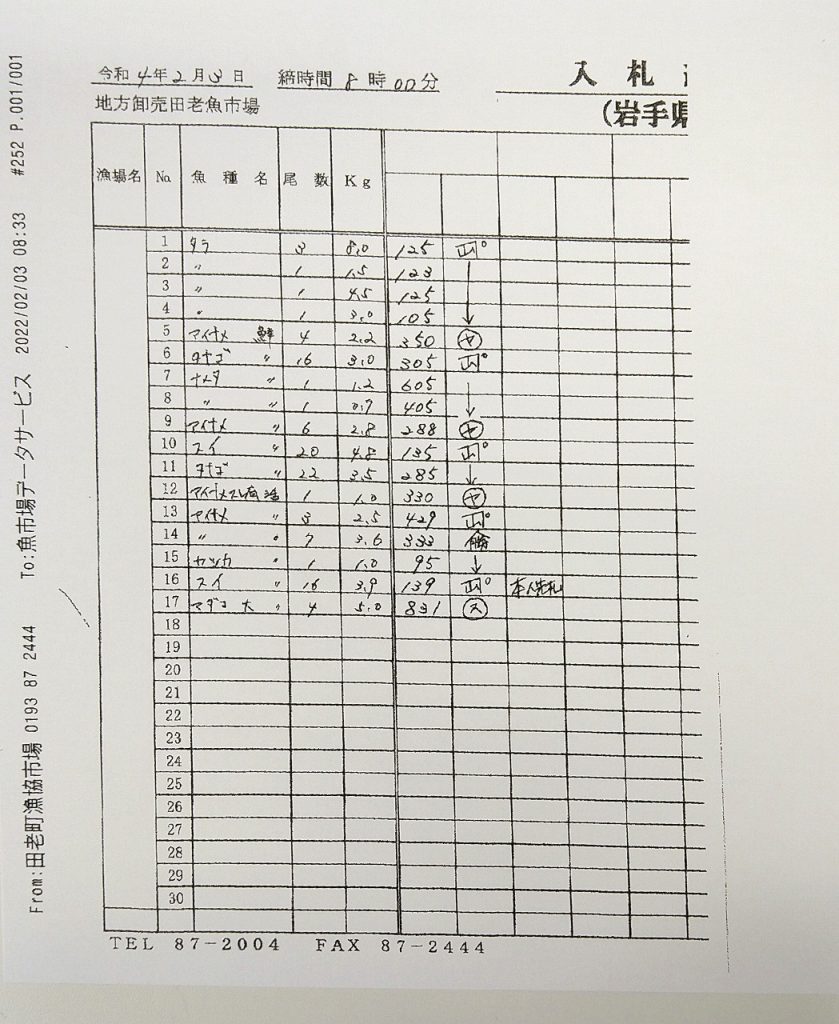 令和4年2月3日 締時間8時00分
入札
(岩手県
地方卸売田老魚市場
漁場名 No. 魚種名 尾数 Kg
1 タラ 3 8.0 125
2 〃 1 1.5 123
3 〃 1 4.5 125
4 〃 1 3.0 105 ↓
5 アイナメ 鮮 4 2.2 350 ㋳
6 タナゴ 〃 16 3.0 305
7 ナメタ 〃 1 1.2 605
8 〃 〃 1 0.7 405 ↓
9 アイナメ 〃 6 2.8 288 ㋳
10 スイ 〃 20 4.8 135
11 タナゴ 〃 22 3.5 285 ↓
12 アイナメスレ有 活 1 1.0 330 ㋳
13 アイナメ 〃 3 2.5 429
14 〃 〃 7 3.6 333
15 ヤツカ 〃 1 1.0 95 ↓
16 スイ 〃 16 3.9 139 本人先札
17 マダコ 大 4 5.0 831 ㋜
18
19
20
21
22
23
24
25
26
27
28
29
30
TEL 87-2004 FAX 87-2444
From:田老町漁協市場 0193 87 2444 To:魚市場データサービス 2022/02/03 08:33 #252 P.001/001